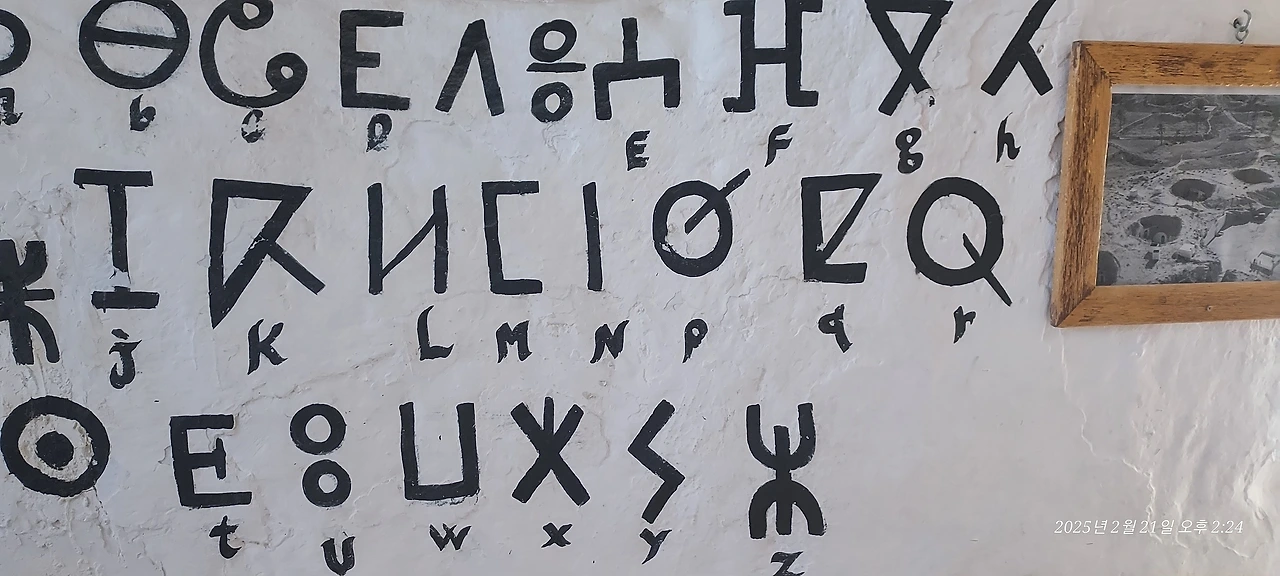 ⴰ ⴱ ⵛ ⴹ ⴷ ⴻ ⴼ ⴳ ⵃ
a b c D E F g h
ⵣ ⵊ ⴽ ⵍ ⵎ ⵏ ⵁ ⵇ ⵕ
j K L M N p q r
ⵙ ⵟ ⵓ ⵡ ⵅ ⵢ ⵣ
t u w x y z
2025년 2월 21일 오후 2:24